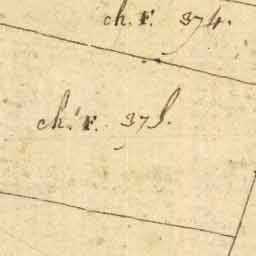 ch. F. 374.
ch. F. 375.